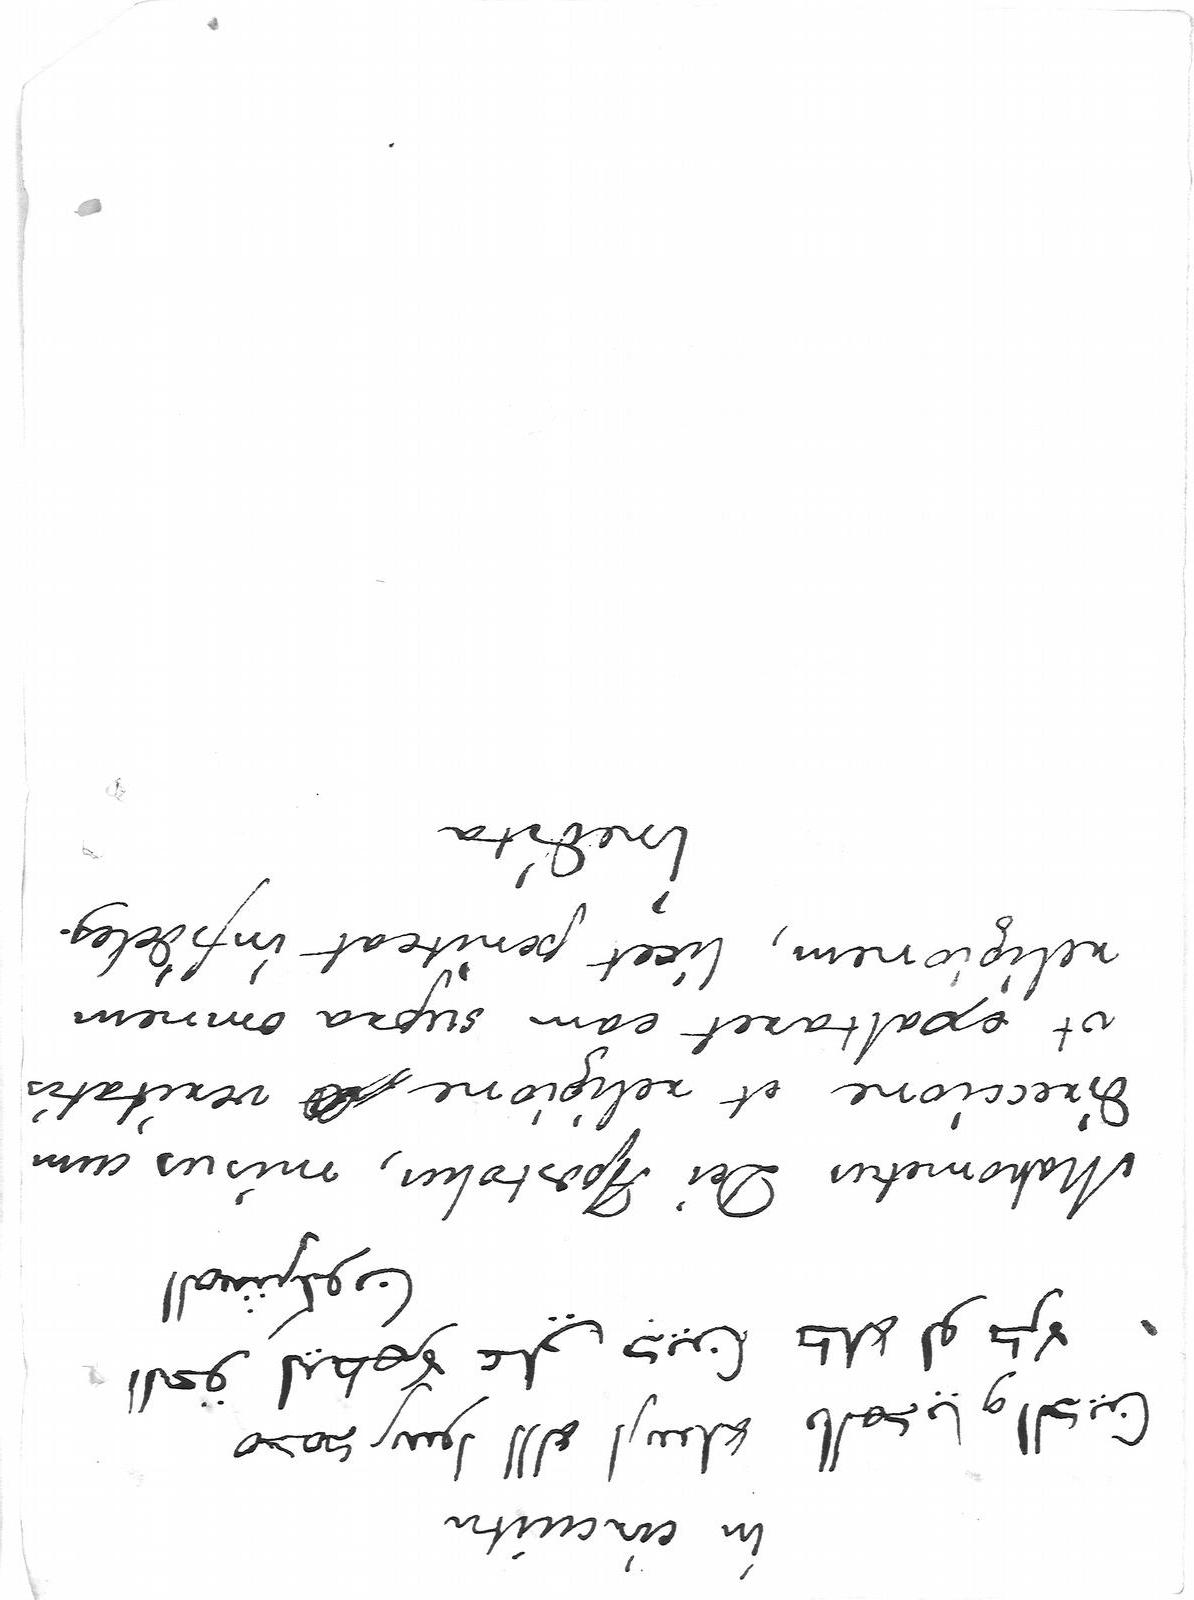 in circuitu
محمد رسول الله ارسله بالهدى و الدين
الحق ليظهره على دين كله و لو كره
المشركون
Mahometus Dei Apostolus, misus cum
direccione et religione veritatis
vt exaltaret eam supra omnem
religionem, licet peniteat infideles.
Inedita